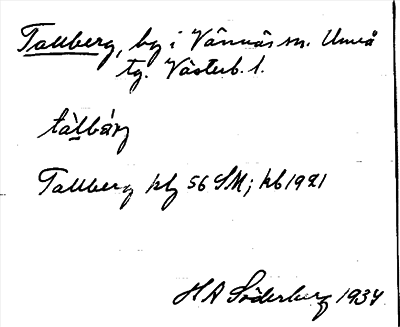 Tallberg, by i Vännäs sn. Umeå
tg. Västerb. l.
tàlbárj
Tallberg kbg 56 SM; kb 1921
H A Söderberg 1934